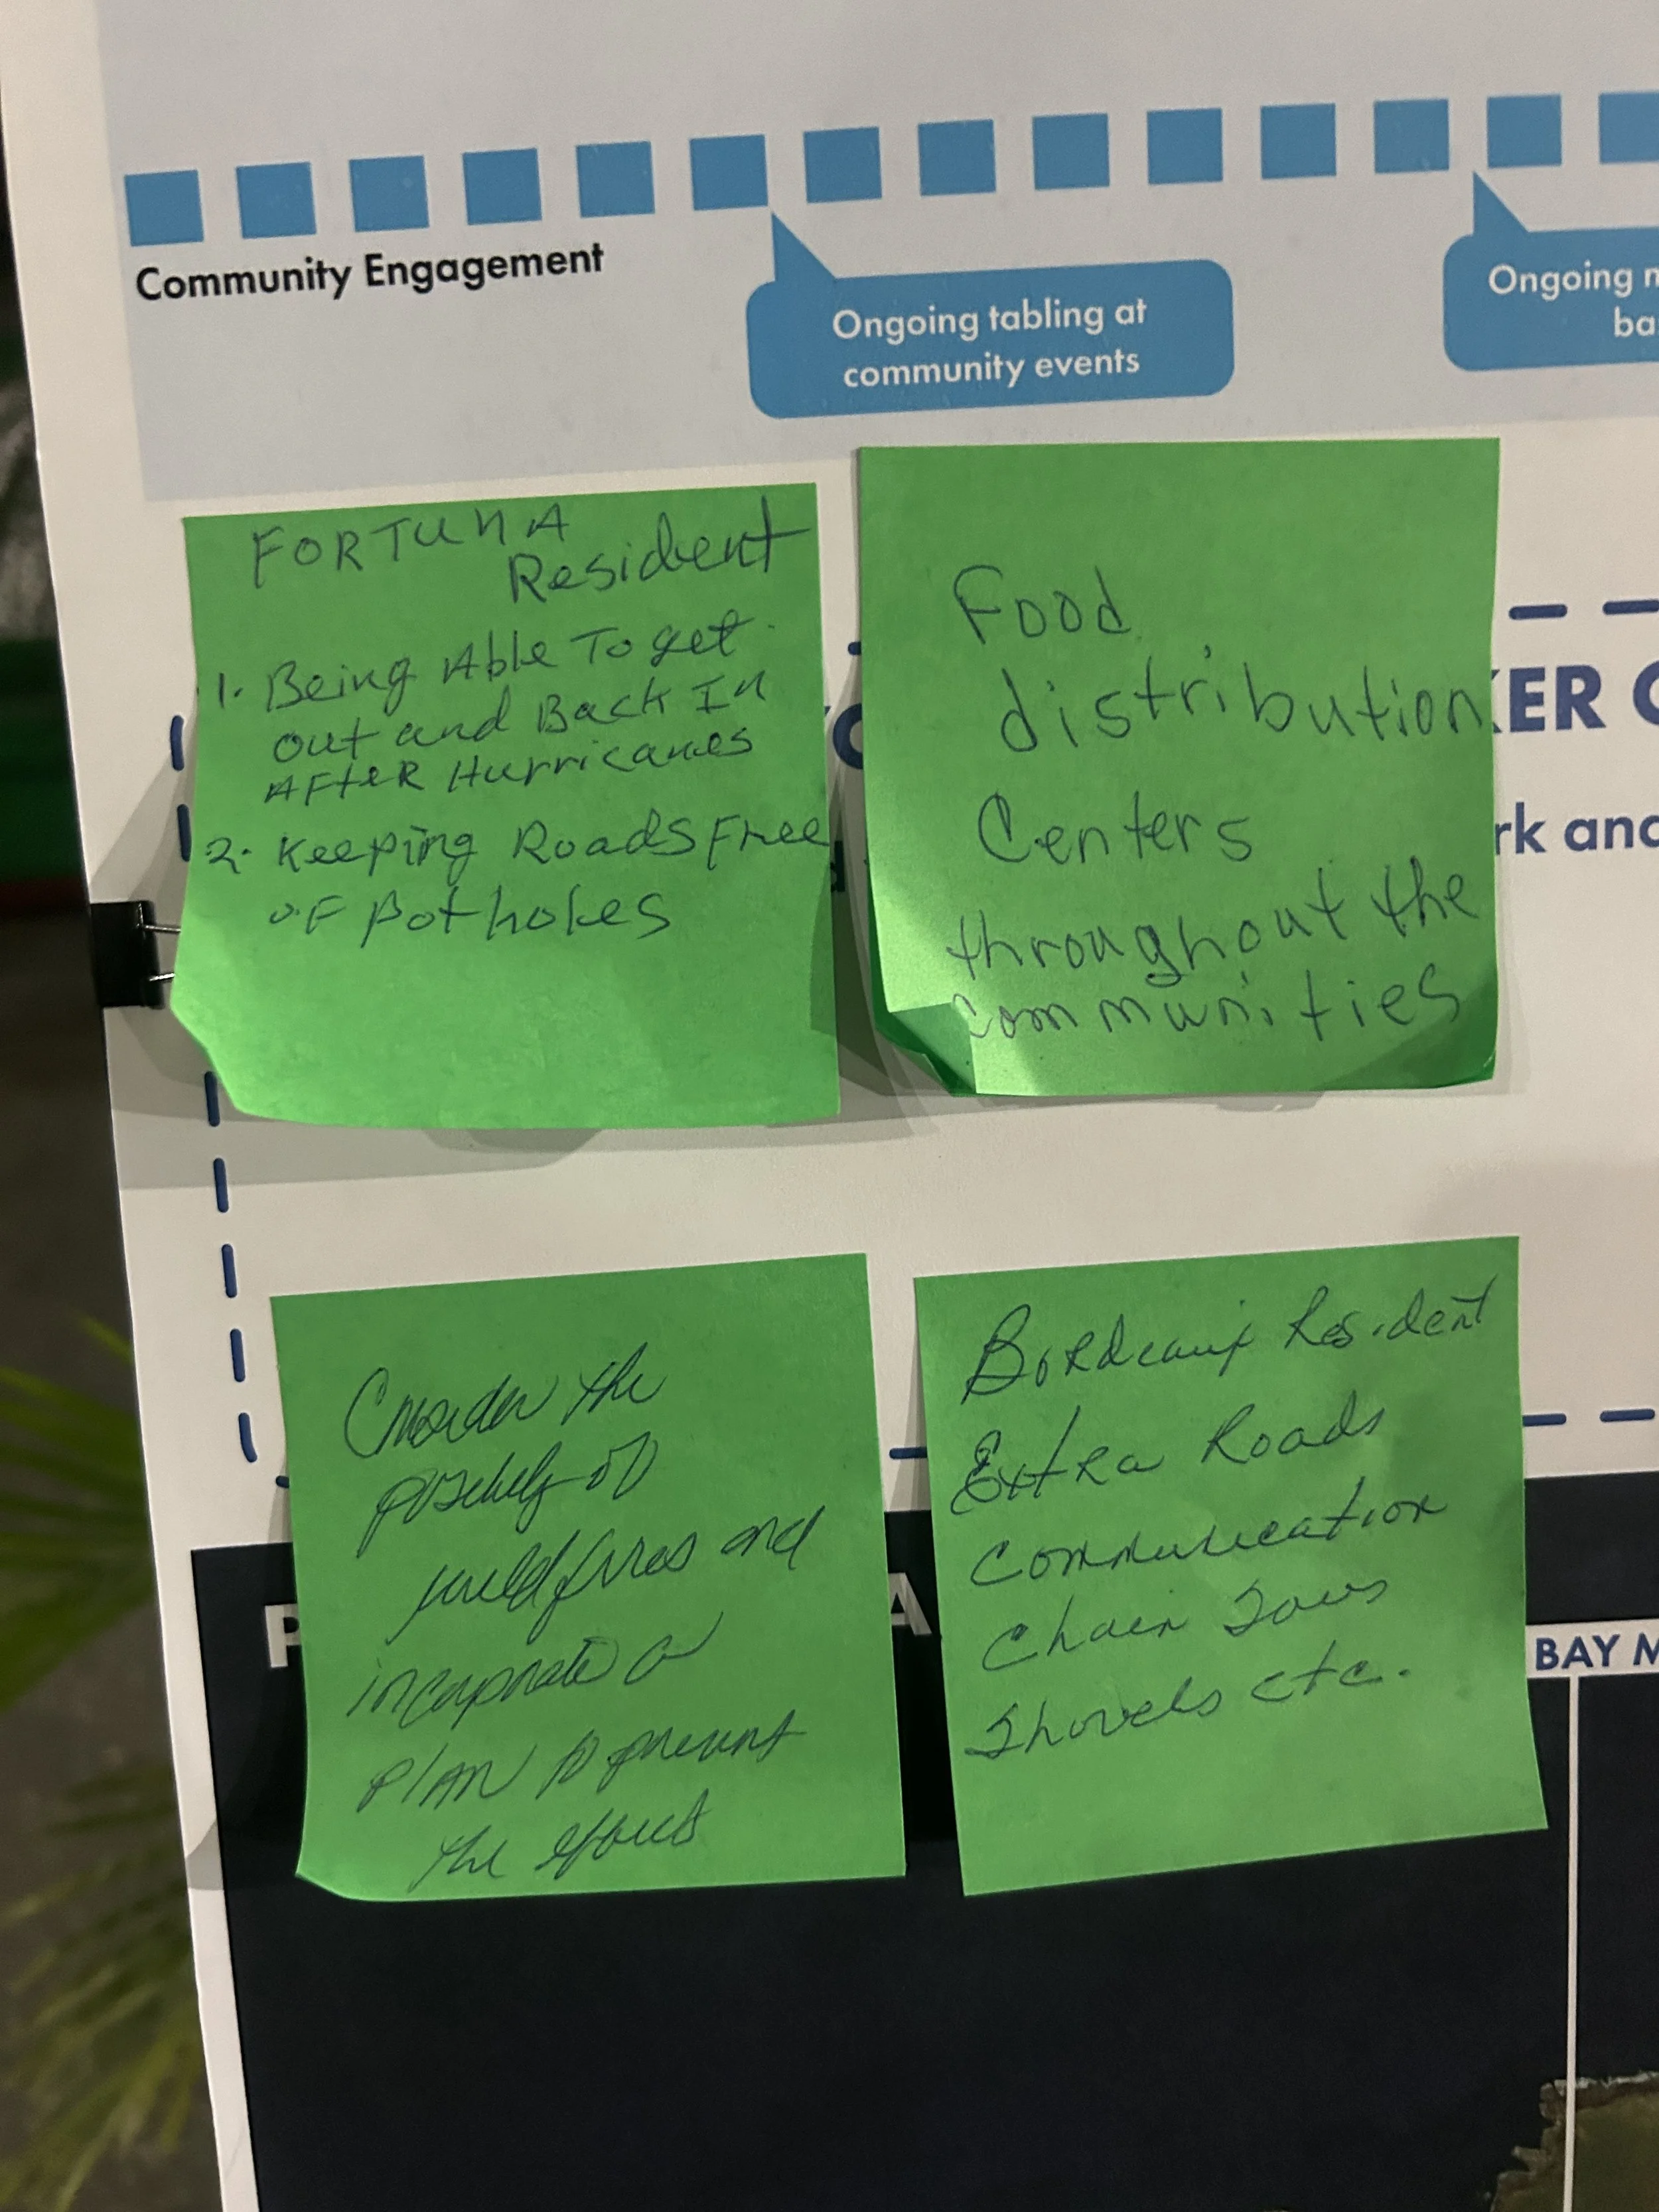 Community Engagement
Ongoing tabling at
community events
Ongoing
ba
FORTUNA
Resident
1. Being Able To get
out and Back In
AFter Hurricanes
2. Keeping Roads Free
OF potholes
Food
distribution
Centers
throughout the
communities
KER
rk and
Consider the
possibility of
wildfires and
incorporate a
plan to prevent
the effects
Bordeaux Resident
Extra Roads
Communication
Chain Saws
Shovels etc.
P
A
BAY M